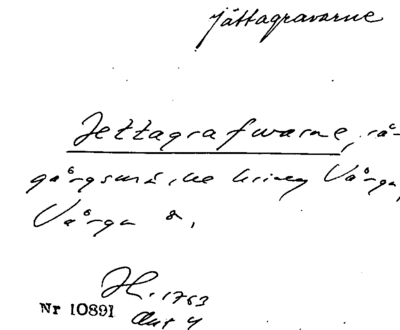 Jättagravarne
Jettagrafwarne, rå-
gångsmärke kring Vårga,
Vårga s.
H. 1763
Akt 4
Nr 10891